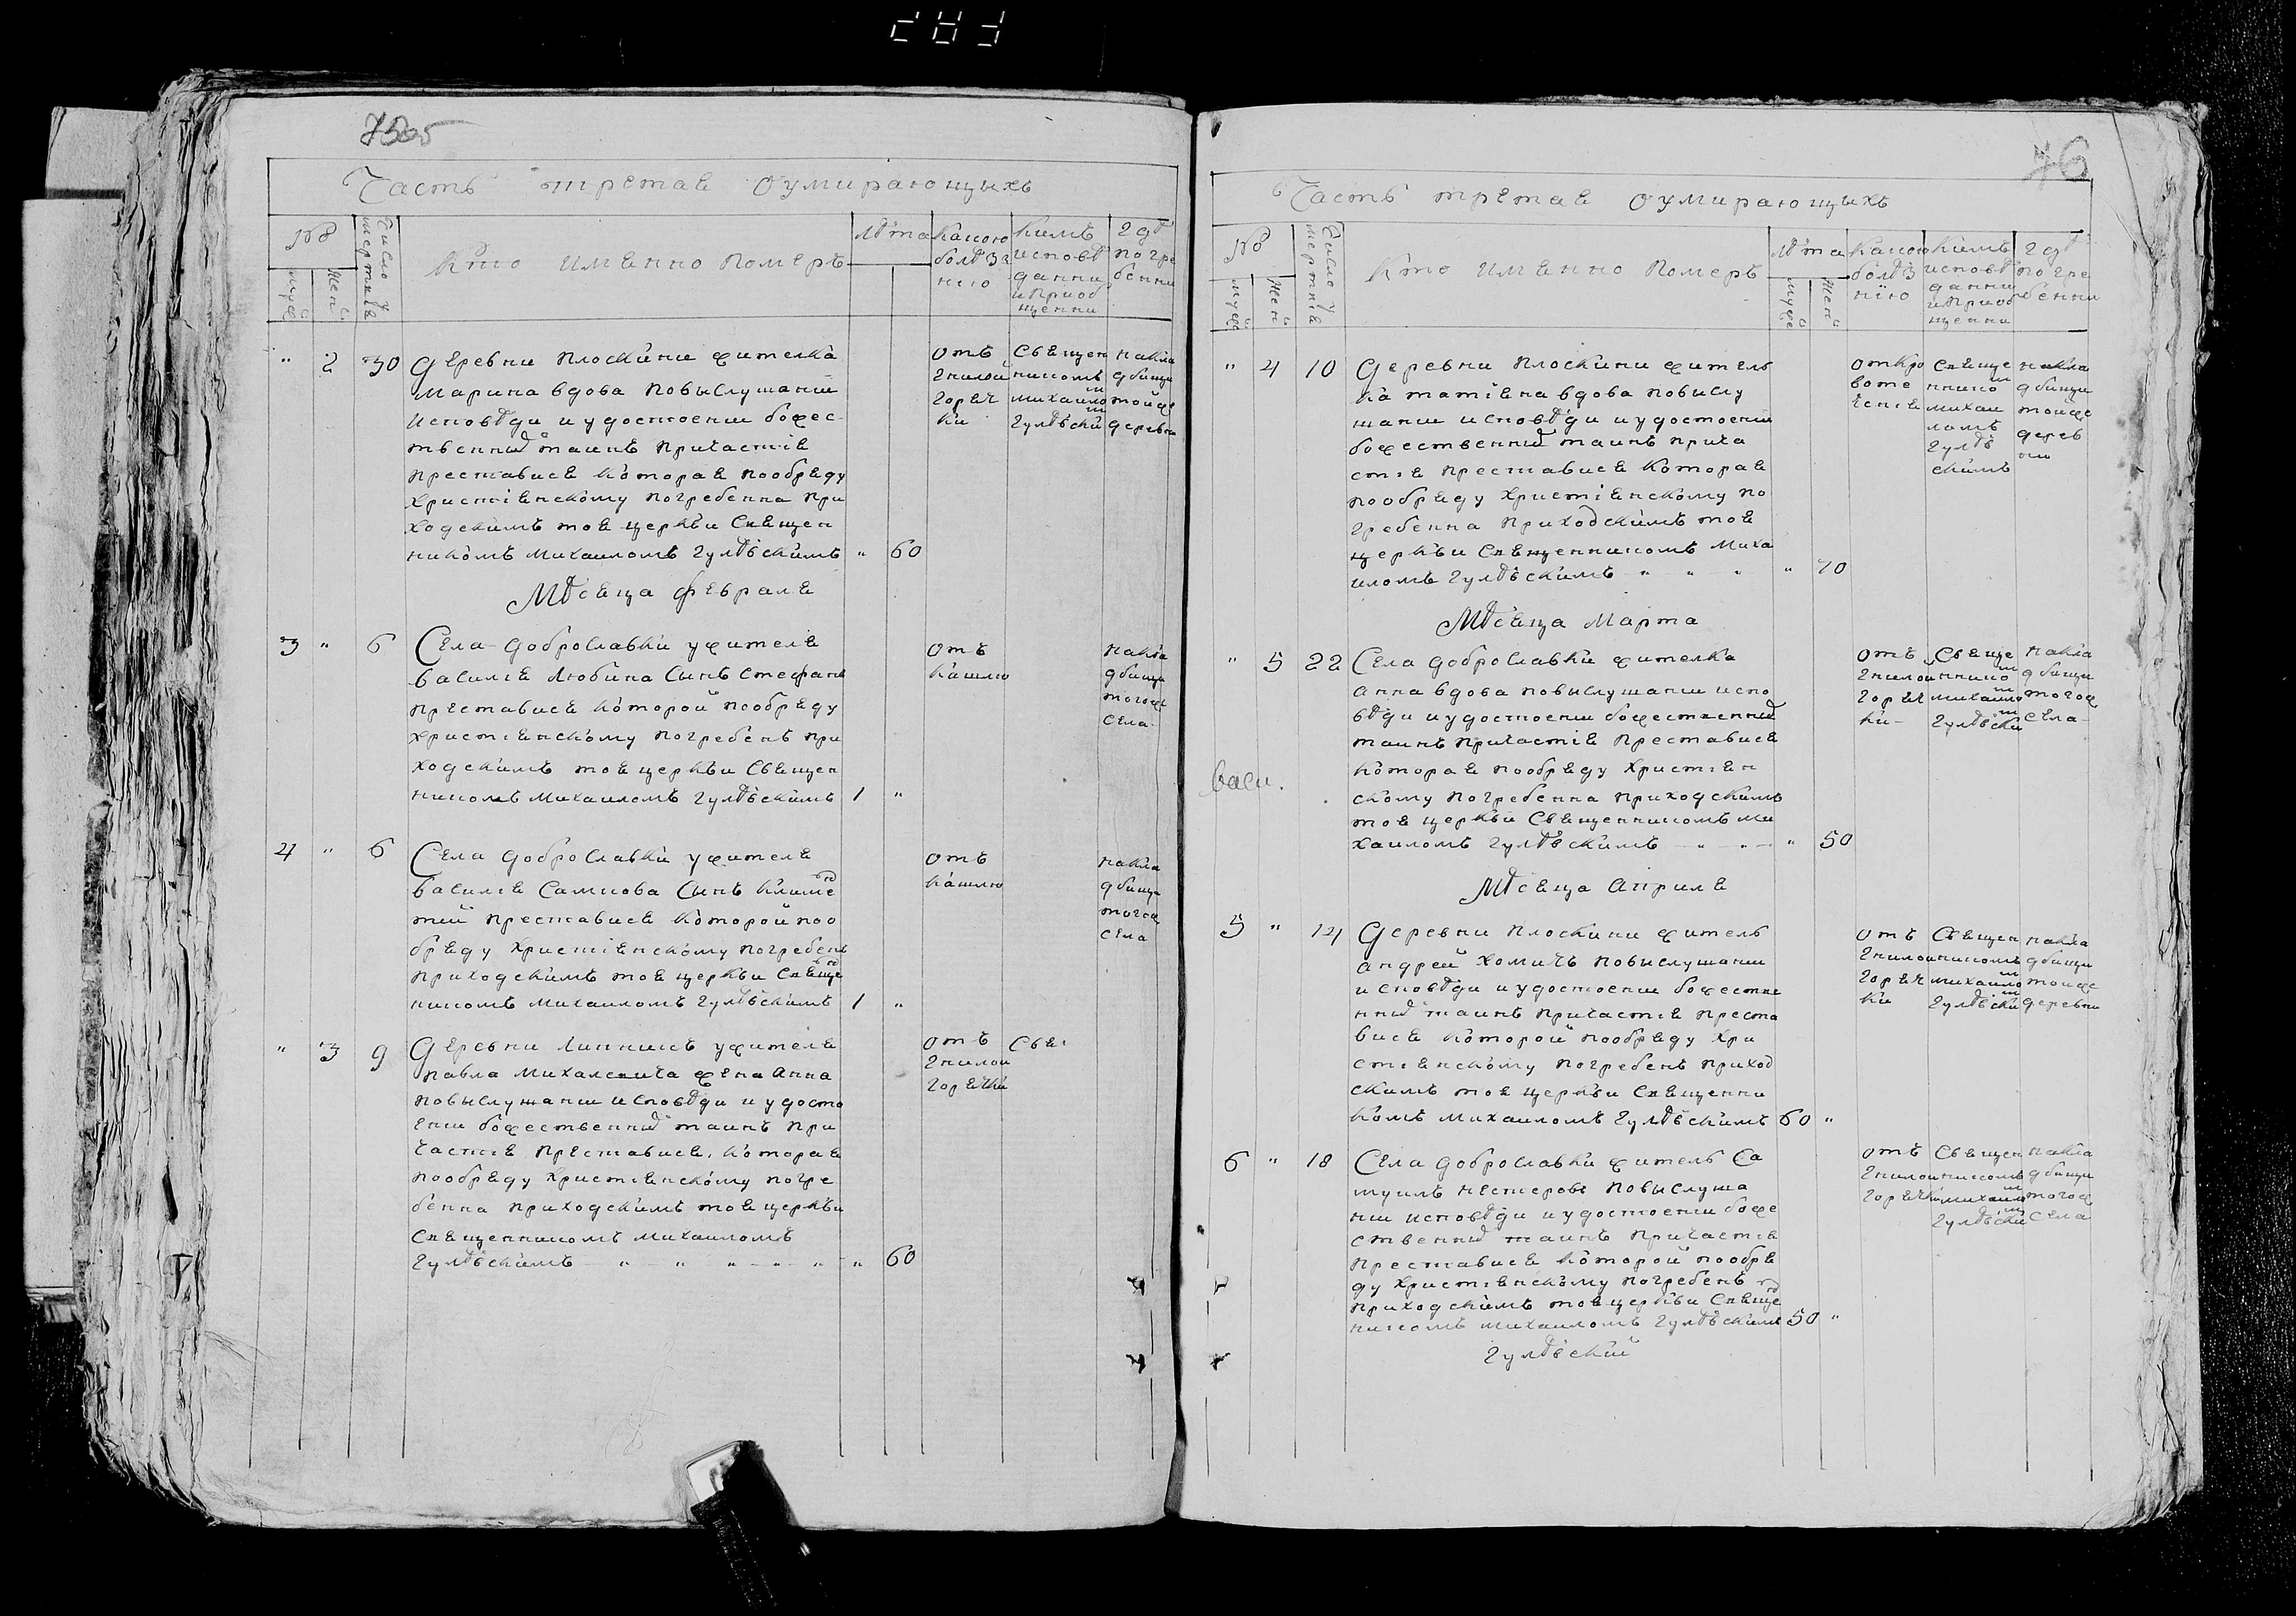 76
Часть третая оумирающыхъ
№
Число умертвія
Кто именно померъ
Лѣта
Какою болѣзнію
Кимъ исповѣданни и приобщенни
Гдѣ погребенни
муж
жен
" 2 30 Деревни Плоскини жителка
Марина вдова повыслушании
исповѣди и удостоении божес-
твенныхъ таинъ причастія
преставися которая пообряду
христіянскому погребенна при
ходскимъ тоя церкви священ
никомъ Михаиломъ Гулѣвскимъ " 60
отъ
гнилой
горяч
ки
священ
никомъ
Михаило м
Гулѣвски м
накла
дбищи
тойже
деревни
Мѣсяца февраля
3 " 6 Села Доброславки ужителя
Василія Любина сынъ Стефанъ
преставися которой пообряду
христіянскому погребенъ при
ходскимъ тоя церкви священ
никомъ Михаиломъ Гулѣвскимъ 1 "
отъ
кашлю
накла
дбищи
тогоже
села
4 " 6 Села Доброславки ужителя
Василія Самцова сынъ Климе н
тий преставися которой поо
бряду христіянскому погребенъ
приходскимъ тоя церкви свяще н
никомъ Михаиломъ Гулѣвскимъ 1 "
отъ
кашлю
накла
дбищи
тогож
села
" 3 9 Деревни Липникъ ужителя
Павла Михалевича жена Анна
повыслушании исповѣди и удосто
ении божественныхъ таинъ при
частія преставися, которая
пообряду христіянскому погре
бенна приходскимъ тоя церкви
священникомъ Михаиломъ
Гулѣвскимъ " " " " " " 60
отъ
гнилои
горячки
Свя
Часть третая оумирающыхъ
№
Число умертвія
Кто именно померъ
Лѣта
Какою болѣзнію
Кимъ исповѣданни и приобщенни
Гдѣ погребенни
муж
жен
муж
жен
" 4 10 Деревни Плоскини житель
ка Татіяна вдова повислу
шании исповѣди и удостоении
божественныхъ таинъ прича
стія преставися которая
пообряду христіянскому по
гребенна приходскимъ тоя
церкви священникомъ Миха
иломъ Гулѣвскимъ " " " " 70
откро
воте
ченія
свяще
ннико м
Михаи
ломъ
Гулѣв
скимъ
накла
дбищи
тоиже
дерев
ни
Мѣсяца Марта
" 5 22 Села Доброславки жителка
Анна вдова повыслушании испо
вѣди и удостоении божественныхъ
таинъ причастія преставися
которая пообряду христіян
скому погребенна приходскимъ
тоя церкви священникомъ Ми
хаиломъ Гулѣвскимъ " " " 50
отъ
гнилои
горяч
ки
свяще
ннико м
Михаило м
Гулѣвски м
накла
дбищи
тогож
села
Васи.
Мѣсяца Априля
5 " 14 Деревни Плоскини житель
Андрей Хомичъ повыслушании
исповѣди и удостоении божестве
нныхъ таинъ причастія преста
вися которой пообряду хри
стіянскому погребенъ приход
скимъ тоя церкви священни
комъ Михаиломъ Гулѣвскимъ 60 "
отъ
гнилои
горяч
ки
священ
никомъ
Михаило м
Гулѣвски м
накла
дбищи
тоиже
деревни
6 " 18 Села Доброславки житель Са
муилъ Нестеровъ повыслуша
нии исповѣди и удостоении боже
ственныхъ таинъ причастія
преставися которой пообря
ду христіянскому погребенъ
приходскимъ тоя церкви свяще н
никомъ Михаиломъ Гулѣвскимъ 50 "
отъ
гнилои
горячки
священ
никомъ
Михаило м
Гулѣвски м
накла
дбищи
тогож
села
Гулѣвский